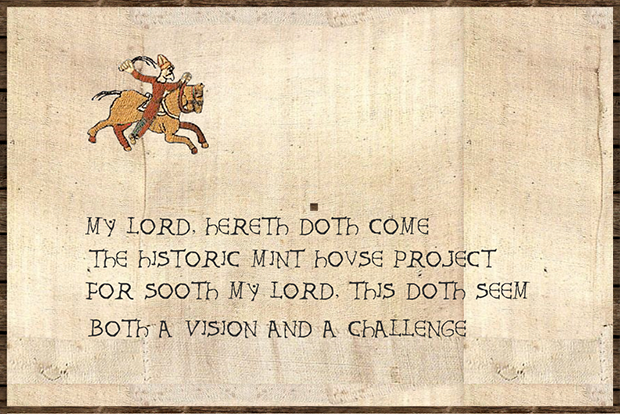 MY LORD, HERETH DOTH COME
THE HISTORIC MINT HOVSE PROJECT
FOR SOOTH MY LORD, THIS DOTH SEEM
BOTH A VISION AND A CHALLENGE